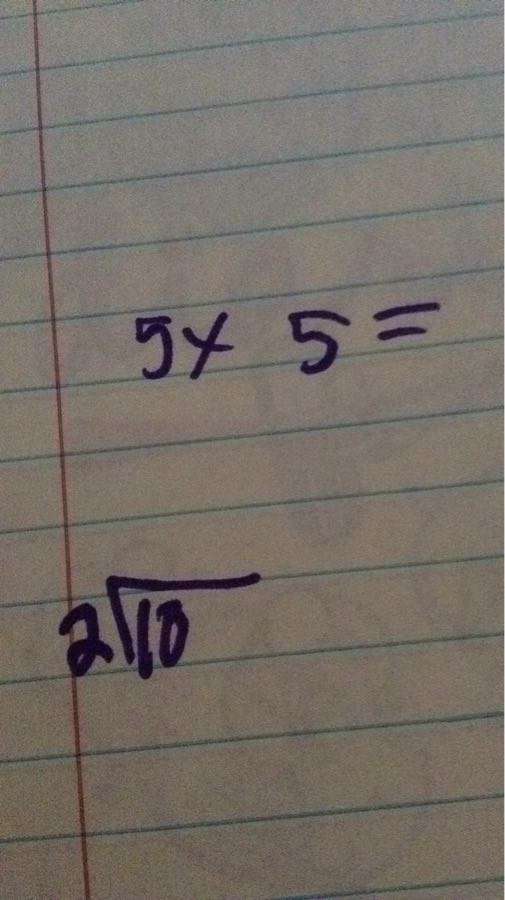 5x 5=
2√10